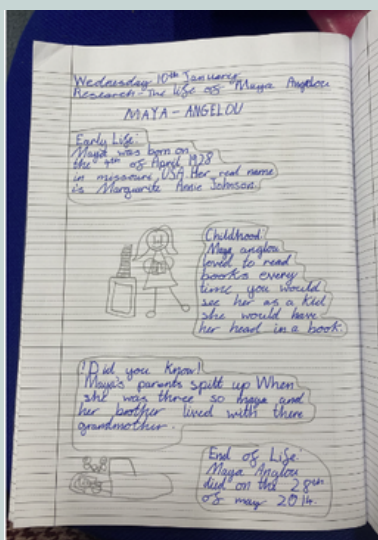 Wednesday 10th January
Research - The life of Maya Angelou
MAYA - ANGELOU
Early Life:
Maya was born on
the 4th of April 1928
in missouri USA Her real name
is Marguritte Annie Johnson.
Childhood:
Maya anglou
loved to read
books every
time you would
see her as a kid
she would have
her head in a book.
!Did you Know!
Maya's parents spilt up When
she was three so maya and
her brother lived with there
grandmother.
End of Life:
Maya Anglou
died on the 28th
of may 2014.